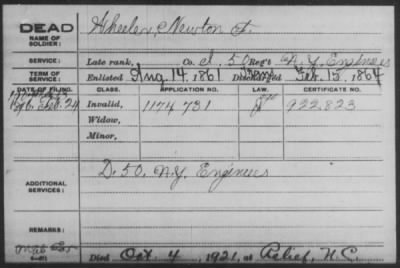 DEAD
NAME OF SOLDIER: Wheeler, Newton
SERVICE: Late rank, Co. I, 50 Reg't N.Y. Engineers
TERM OF SERVICE: Enlisted Aug. 14, 1861 Discharged Feb. 15, 1864
DATE OF FILING. CLASS. APPLICATION NO. LAW. CERTIFICATE NO.
Feb. 24 Invalid, 1174 731 922823
Widow,
Minor,
ADDITIONAL SERVICES: D. 50. N.Y. Engineers
REMARKS:
Died Oct. 4, 1921, at Relief, N.C.